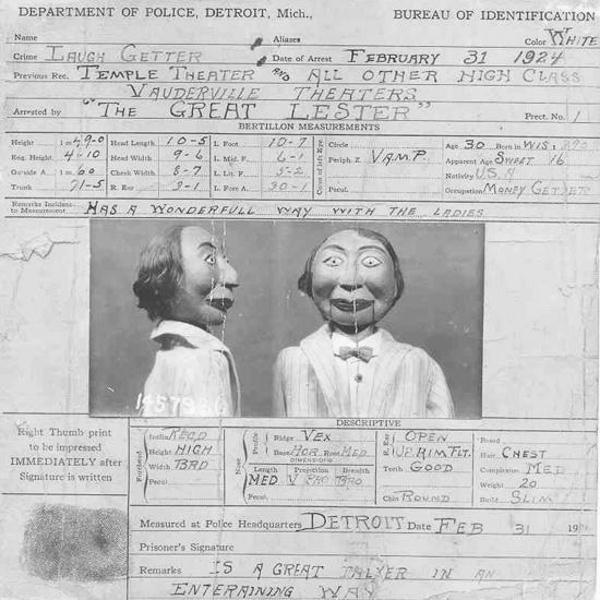 DEPARTMENT OF POLICE, DETROIT, Mich., BUREAU OF IDENTIFICATION
Name Aliases Color WHITE
Crime LAUGH GETTER Date of Arrest FEBRUARY 31 1924
Previous Rec. TEMPLE THEATER AND ALL OTHER HIGH CLASS
VAUDERVILLE THEATERS
Arrested by "THE GREAT LESTER" Prect. No. 1
BERTILLON MEASUREMENTS
Height 1 m 49-0 Head Length 10-5 L. Foot 10-7 Circle Age 30 Born in WIS
Eng. Height 4-10 Head Width 9-6 L. Mid. F. 6-1 Periph Z. VAMP. Apparent Age SWEET 16
Outside A. 1 m 60 Cheek Width 8-7 L. Lit F. 5-2 Nativity U.S.A
Trunk 71-5 R. Ear 3-1 L. Fore A. 30-1 Pecul. Occupation MONEY GETTER
Remarks Incident
to Measurement HAS A WONDERFULL WAY WITH THE LADIES
DESCRIPTIVE
Right Thumb print
to be impressed
IMMEDIATELY after
Signature is written
Forehead Inclin. RECD Height HIGH Width BRD Pecul.
Nose Profile Ridge VEX Base HOR Root MED
DIMENSIONS
Length Projection Breadth
MED
Pecul.
R. Ear OPEN
UP. RIM FLT.
Teeth GOOD
Chin ROUND
Beard
Hair CHEST
Complexion MED
Weight 20
Build SLIM
Measured at Police Headquarters DETROIT Date FEB 31 19
Prisoner's Signature
Remarks IS A GREAT TALKER IN AN
ENTERAINING WAY